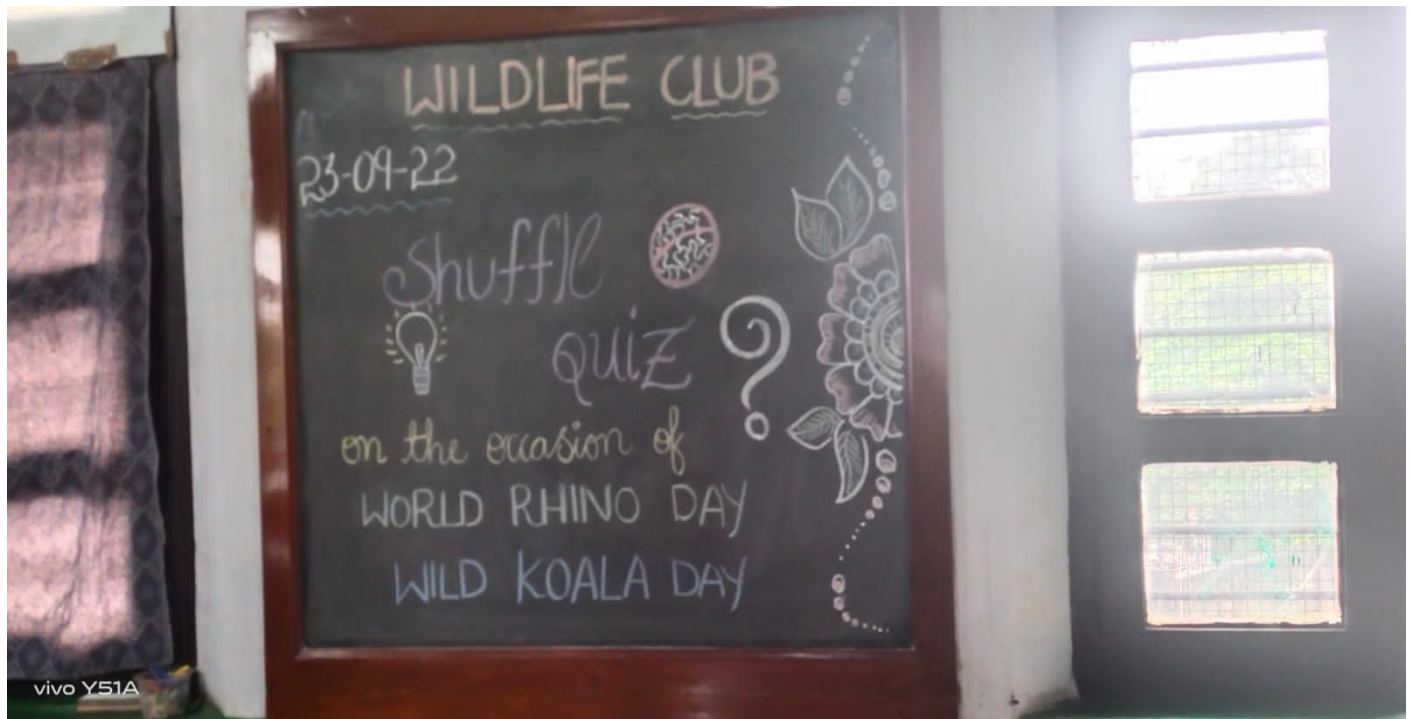 WILDLIFE CLUB
23-09-22
Shuffle
quiz ?
on the occasion of
WORLD RHINO DAY
WILD KOALA DAY
vivo Y51A